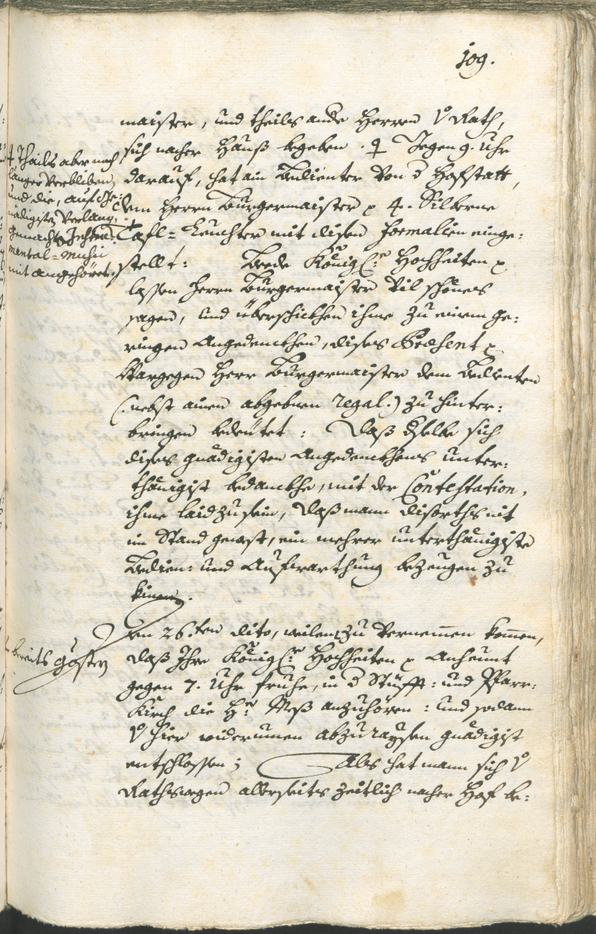 109.
maister, und theils ande Herren V Rath,
sich nacher Hauß begeben. Gegen 9. Uhr
darauf, hat ain Bedienter von d Hofstatt,
dem Herrn Burgermaister p 4. Silberne
Tafl=Leuchter mit disen formalien einge:
stellt: Beede Königl: Hochheiten p
lassen Herrn Burgermaister vil schönes
sagen, und überschickhen ihme zu einem ge:
ringen Angedenckhen, dises Present p.
Wargegen Herr Burgermaister dem Bedienten
(: nebst ainen abgebnen regal:) zu hinter:
bringen bedeutet: Daß dselbe sich
dises gnädigisten Angedenckhens unter:
thänigist bedanckhe, mit der Contestation,
ihme laid zu sein, daß mann disorths nit
im Stand gewest, ein mehrer unterthänigiste
Bedien: und Aufwarthung bezeugen zu
kinen.
Den 26.ten dito, weilen zu vernemmen komen,
daß Ihre Königl: Hochheiten p Anheunt
gegen 7. Uhr fruhe, in d Stüfft= und Pfarr=
Kirch die H: Meß anzuhören: und sodann
V hier widerumen abzuraysen gnädigist
entschlossen; Als hat mann sich V
Raths wegen allerseits zeitlich nacher Hof be:
Theils aber noch
länger verbliben,
und die, auf Ihr
nädigistes Verlang,
gemachte Instru:
mental=Music
mit angehört.
bereits gösten